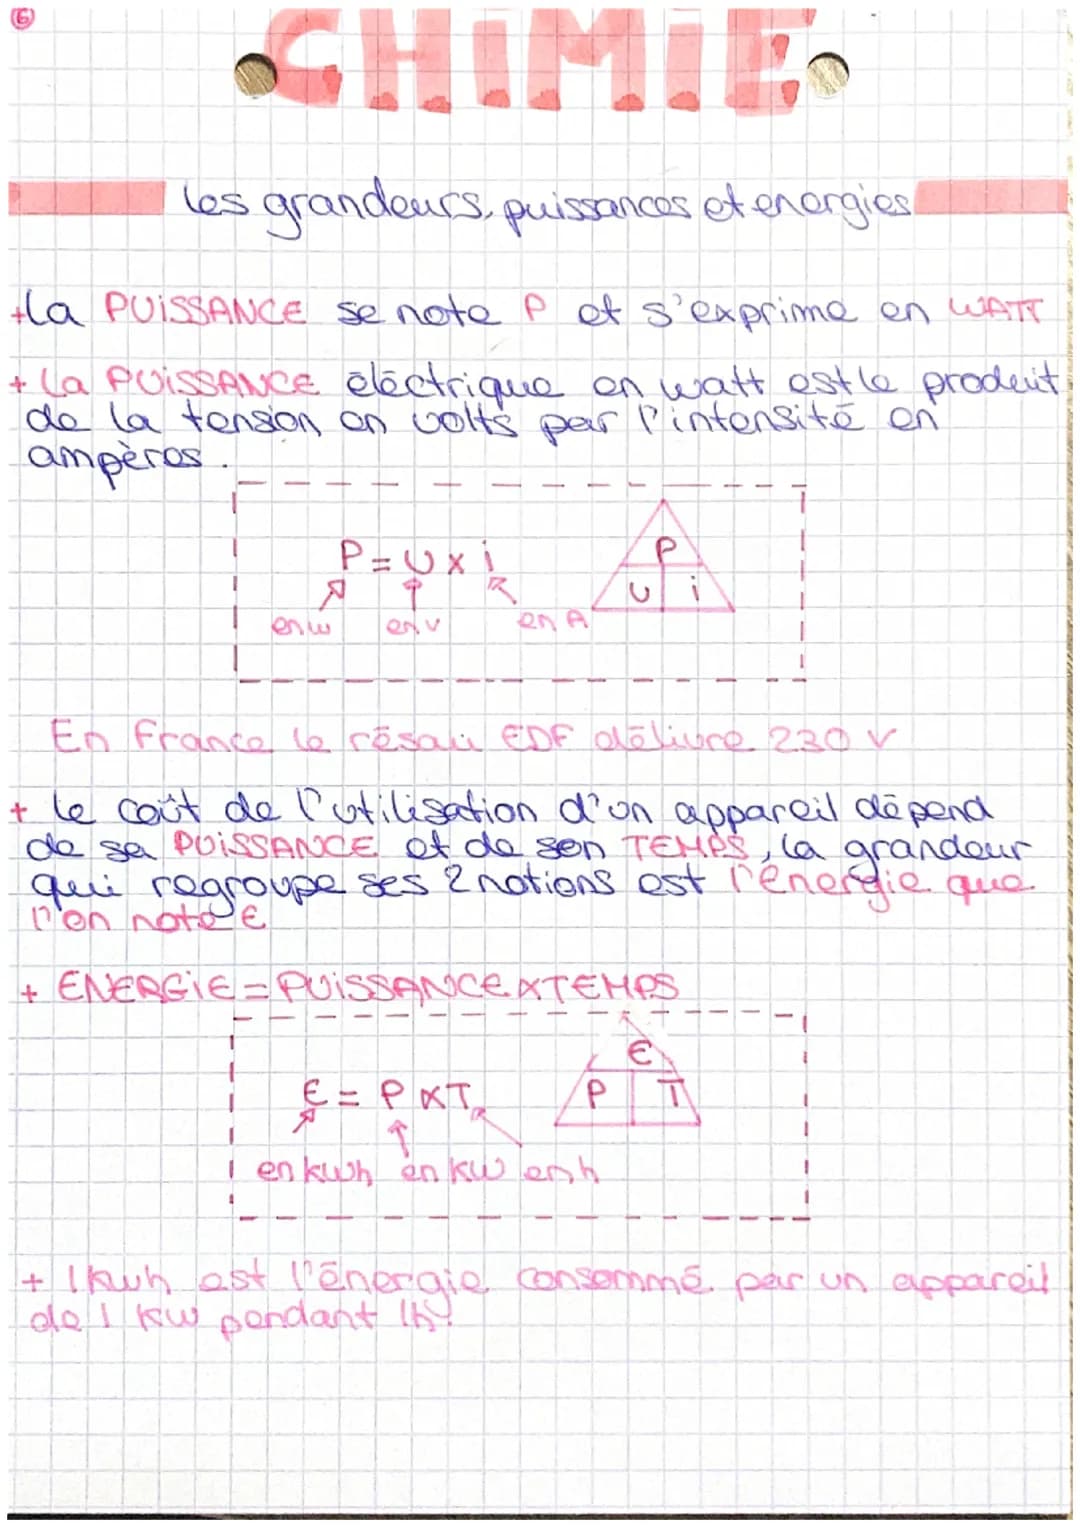 6
CHiMiE
les grandeurs, puissances et energies
+la PUiSSANCE se note P et s'exprime en WATT
+ la PUiSSANCE éléctrique en watt est le produit
de la tension en volts par l'intensité en
ampères.
P = U x i
P
U i
en w en v en A
En France le résau EDF délivre 230 V
+ le coût de l'utilisation d'un appareil dépend
de sa PUiSSANCE et de son TEMPS, la grandeur
qui regroupe ses 2 notions est l'énergie que
l'on note E
+ ENERGiE = PUiSSANCE x TEMPS
E
E = P x T
P T
en kwh en kw en h
+ 1 kwh est l'énergie consommé par un appareil
de 1 kw pendant 1h.